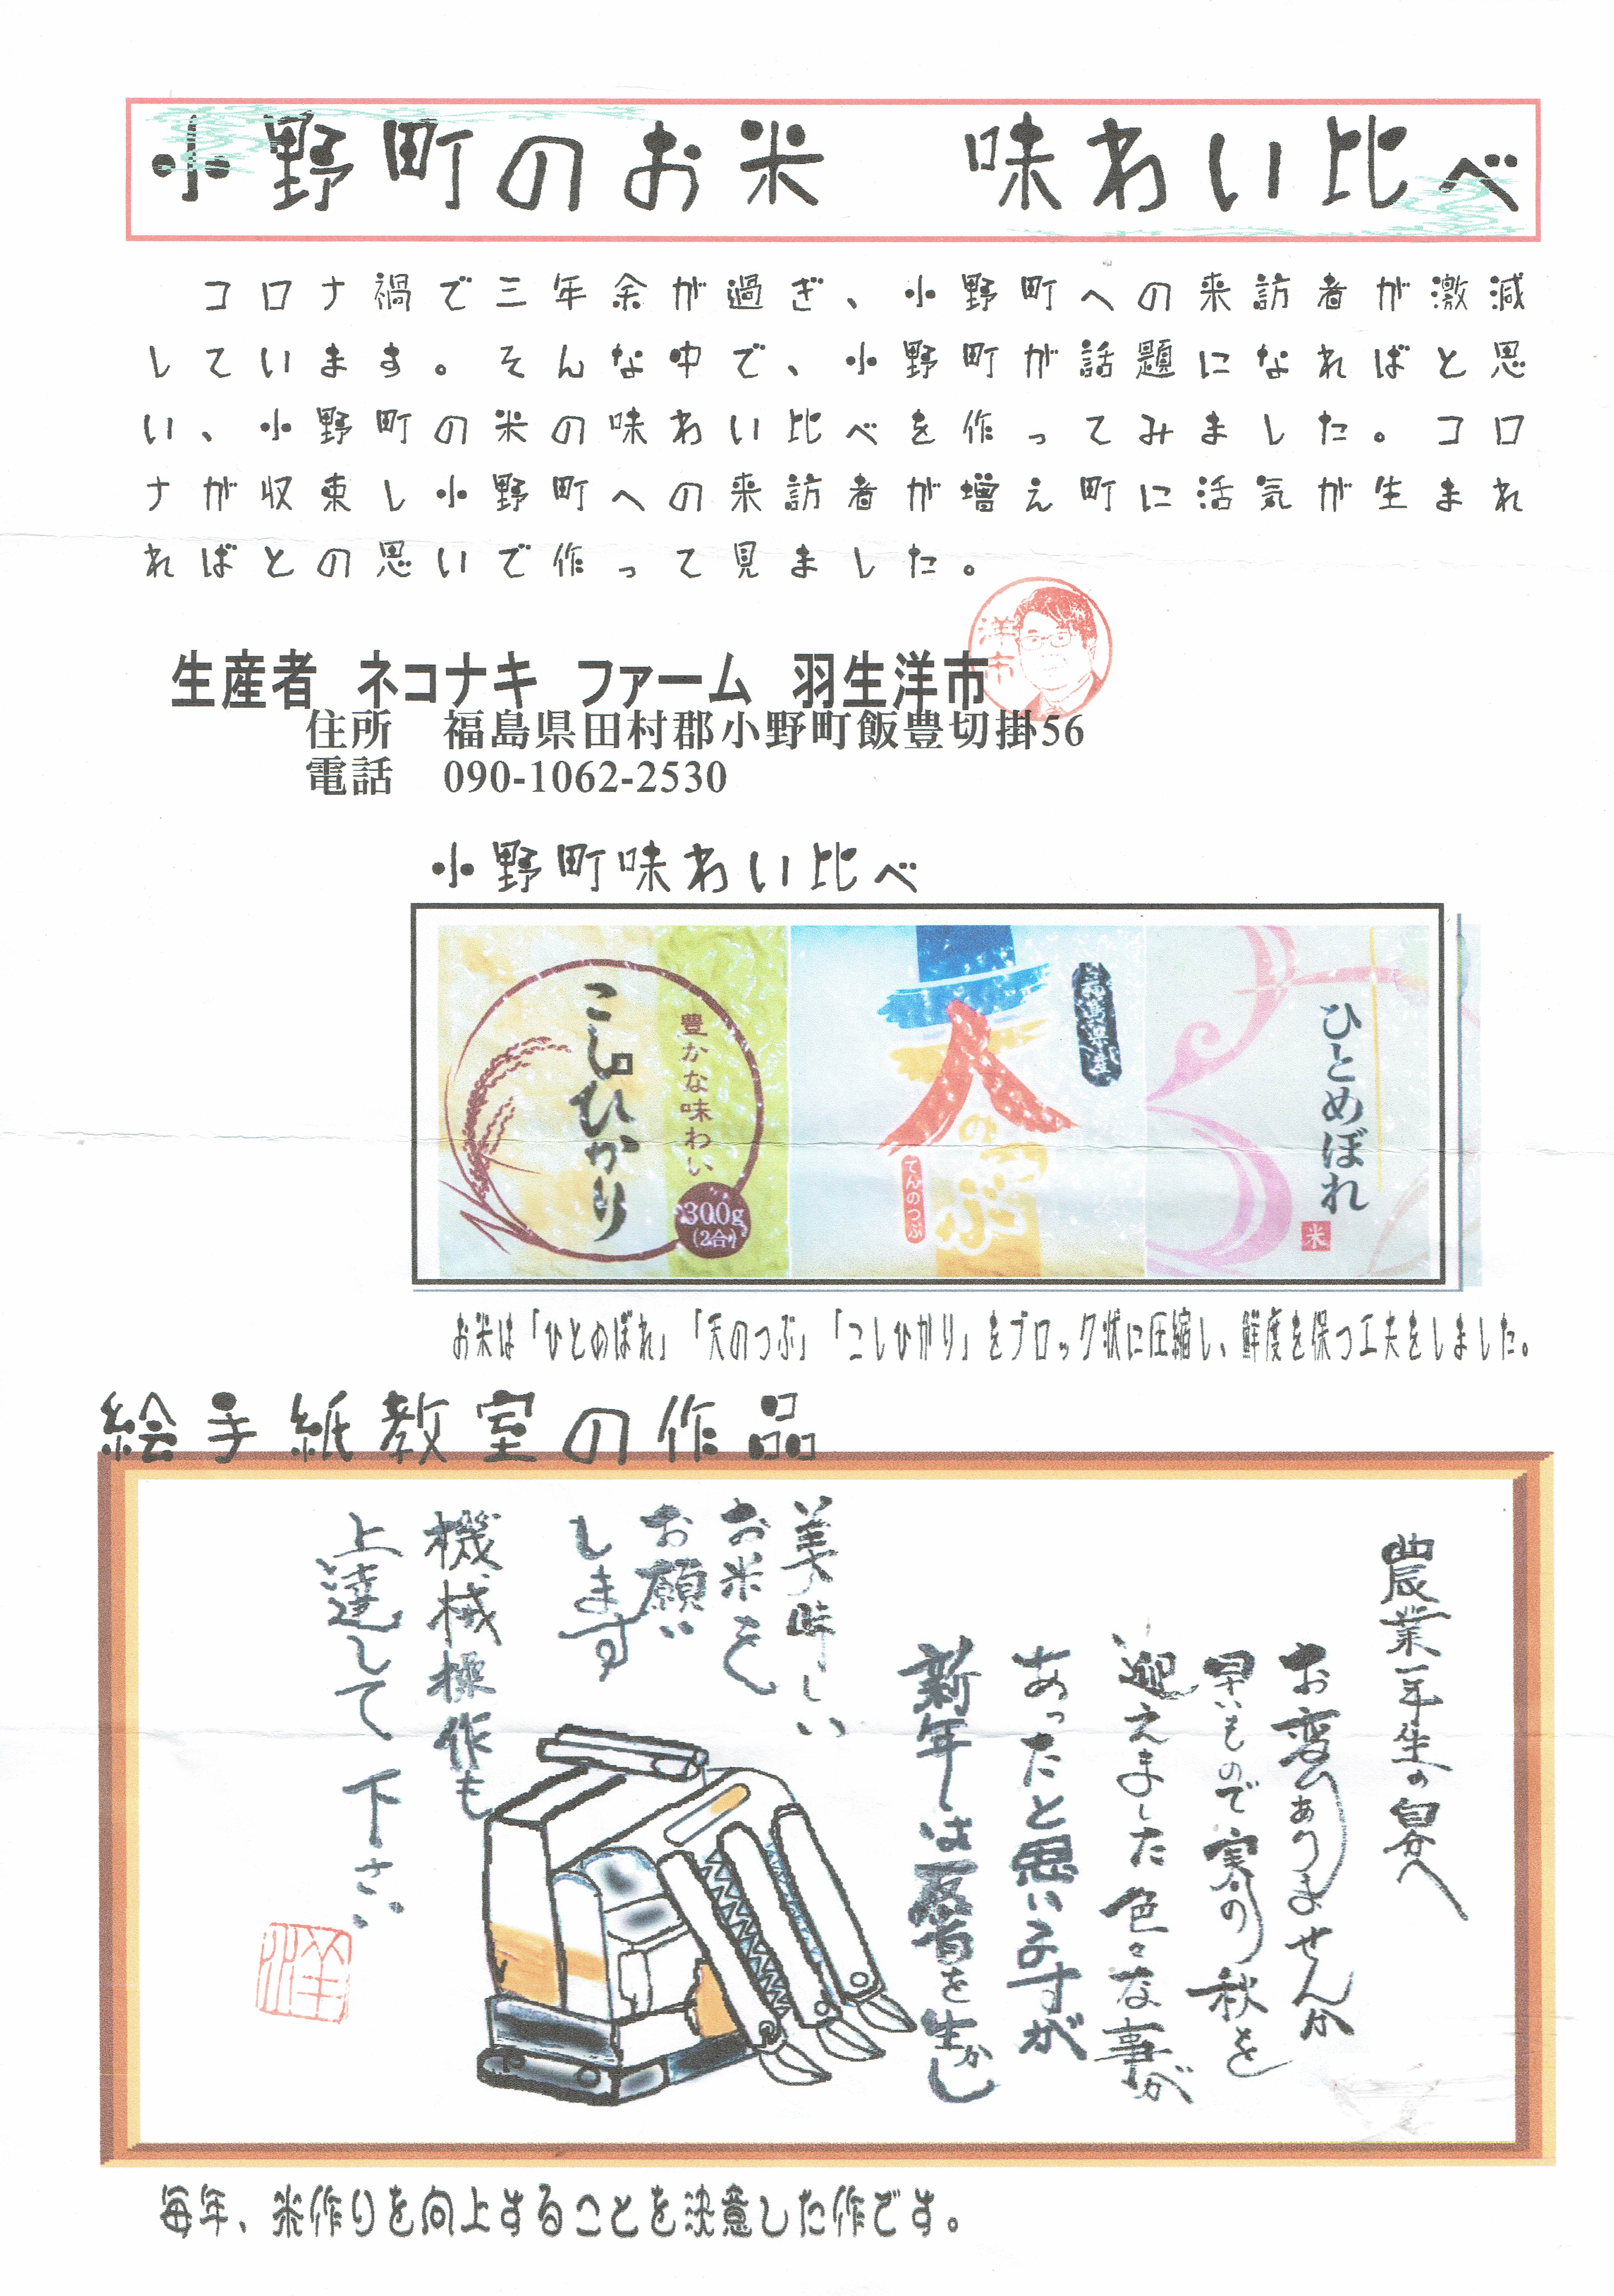 小野町のお米　味わい比べ
コロナ禍で三年余が過ぎ、小野町への来訪者が激減
しています。そんな中で、小野町が話題になればと思
い、小野町の米の味わい比べを作ってみました。コロ
ナが収束し小野町への来訪者が増え町に活気が生まれ
ればとの思いで作って見ました。
洋市
生産者　ネコナキ　ファーム　羽生洋市
住所　福島県田村郡小野町飯豊切掛56
電話　090-1062-2530
小野町味わい比べ
こしひかり
豊かな味わい
300g
(2合)
天のつぶ
てんのつぶ
福島県産
ひとめぼれ
米
お米は「ひとめぼれ」「天のつぶ」「こしひかり」をブロック状に圧縮し、鮮度を保つ工夫をしました。
絵手紙教室の作品
農業一年生の自分へ
お変りありませんか
早いもので実りの秋を
迎えました色々な事が
あったと思いますが
新年は反省を生かし
美味しい
お米を
お願い
します
機械操作も
上達して下さい
洋
毎年、米作りを向上することを決意した作です。